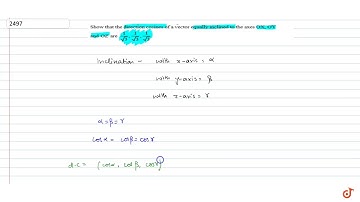 2497
Show that the direction cosines of a vector equally inclined to the axes OX, OY
and OZ are 1/√3, 1/√3, 1/√3
Inclination - with x-axis = α
with y-axis = β
with z-axis = γ
α = β = γ
cosα = cosβ = cosγ
d.c = (cosα, cosβ, cosγ)